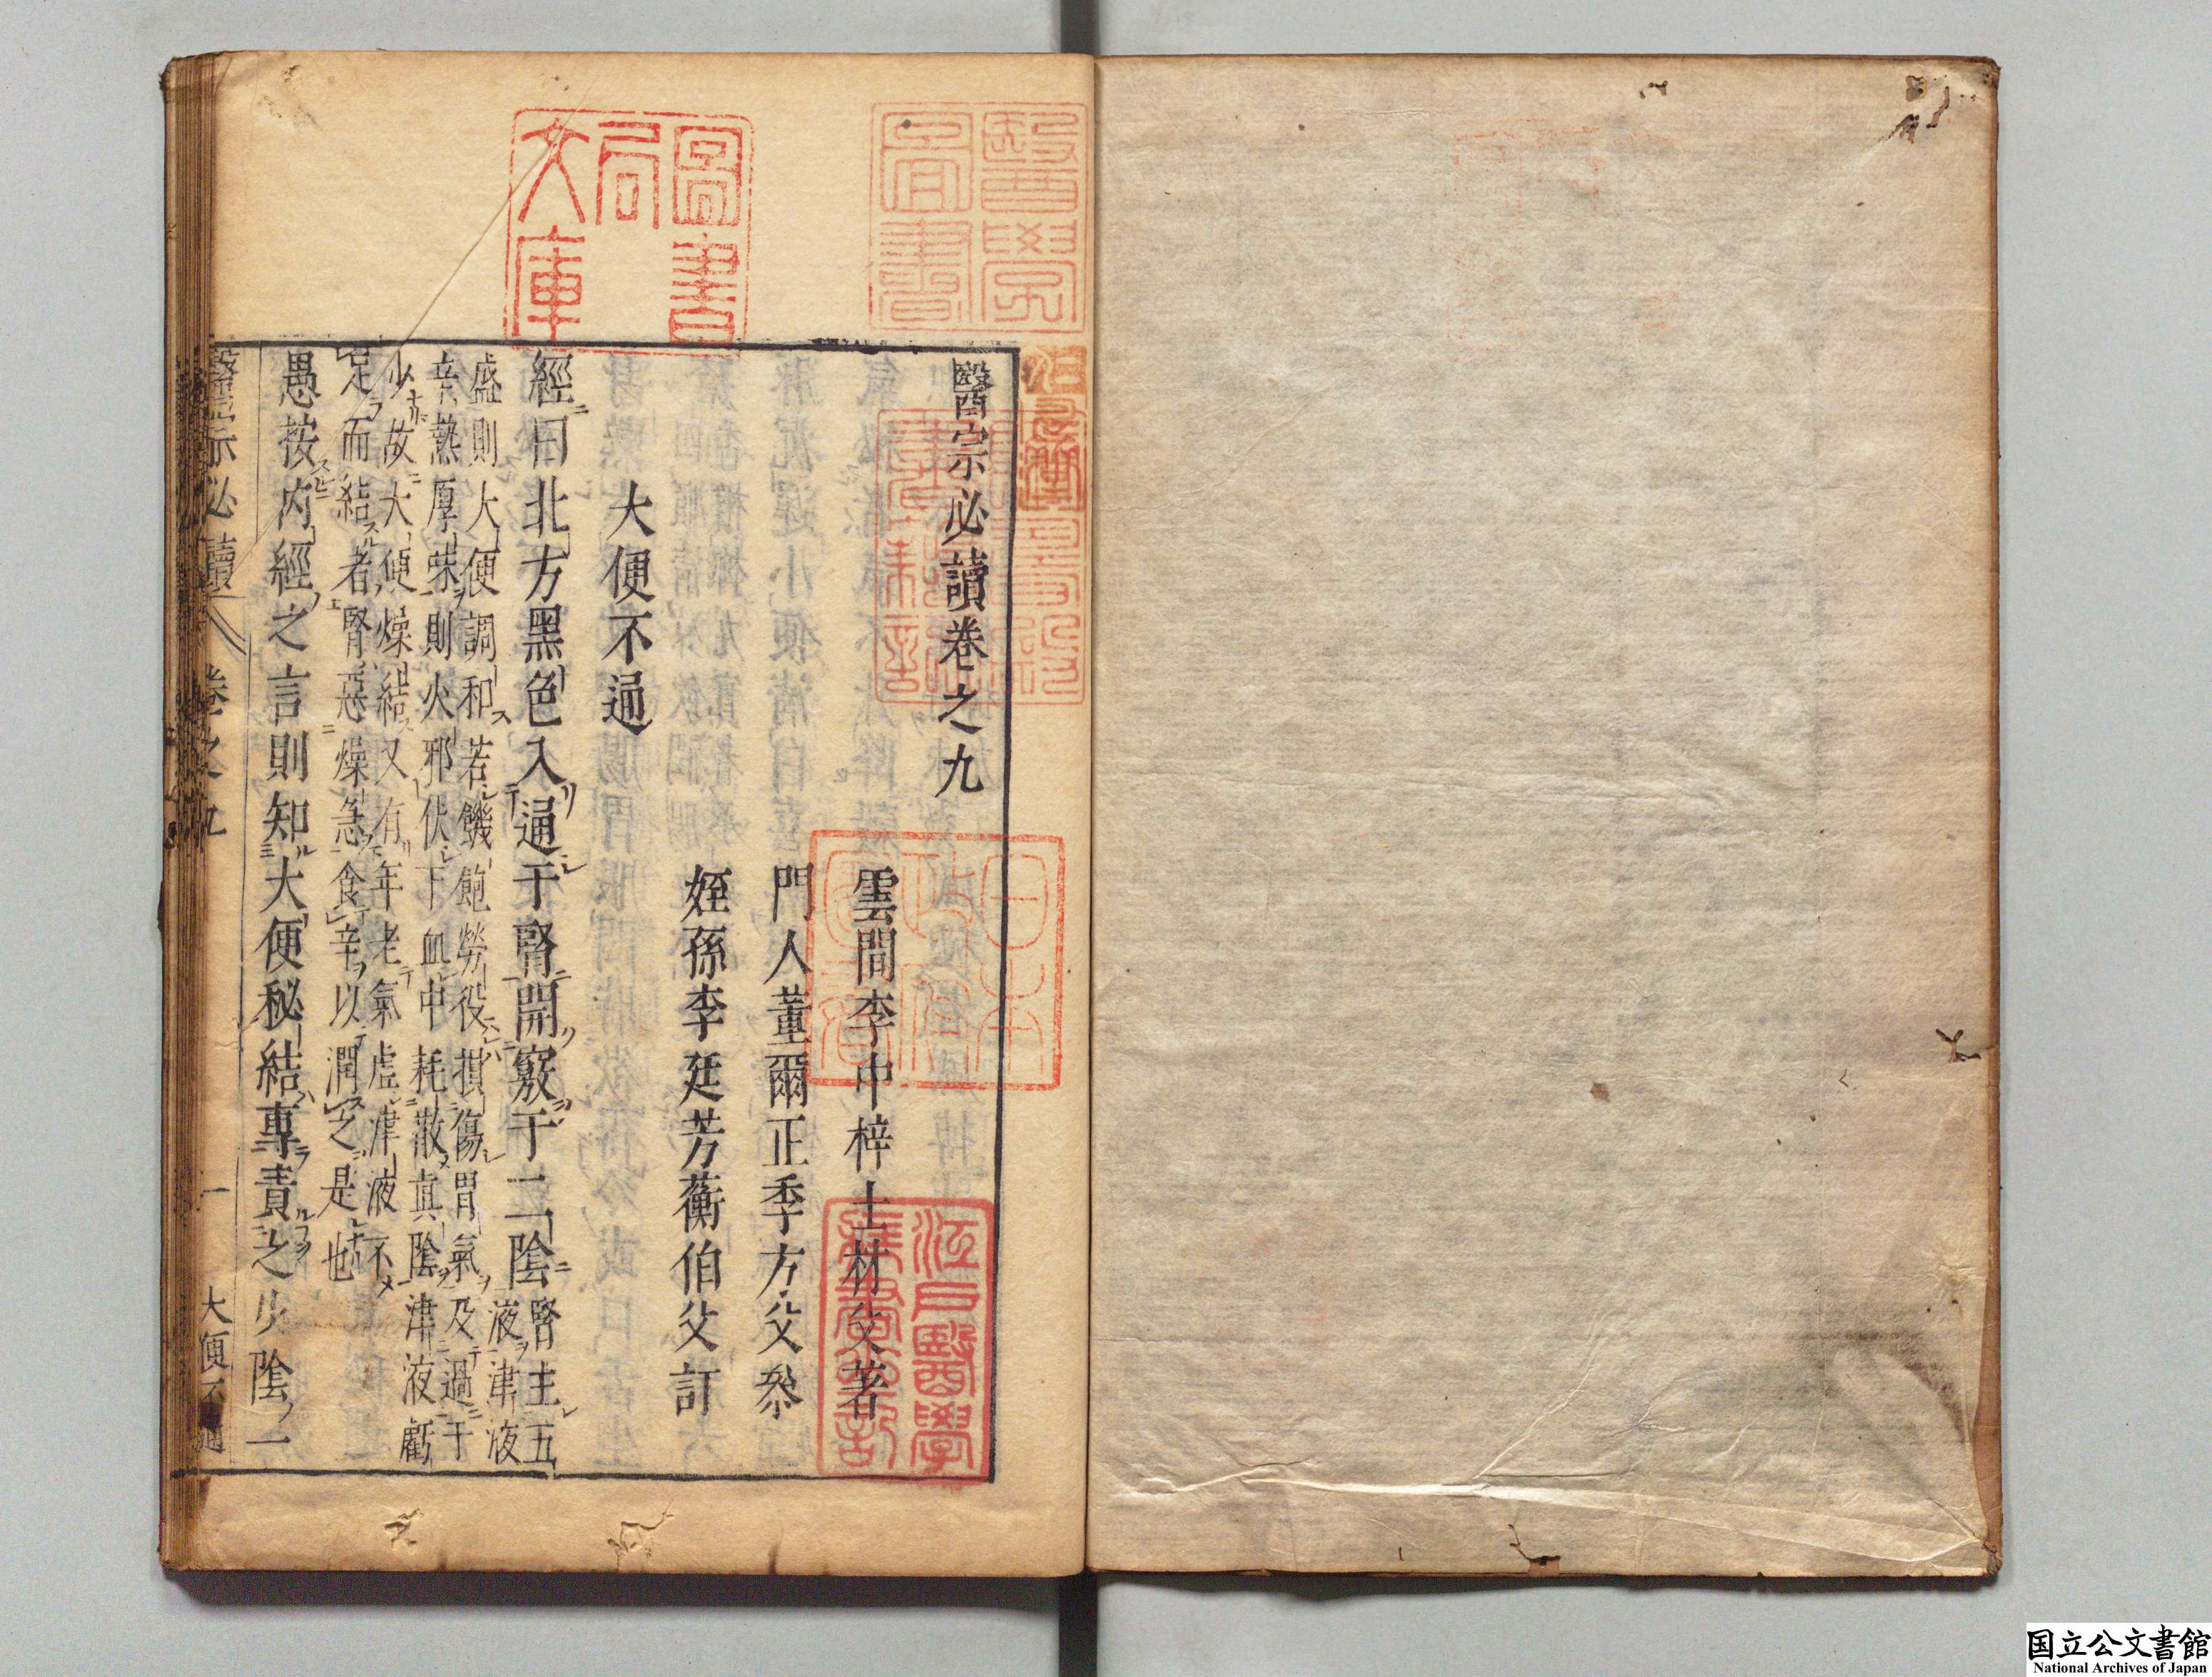 醫宗必讀卷之九
雲間李中梓士材父著
門人董爾正季方父叅
姪孫李廷芳蘅伯父訂
大便不通
經曰北方黑色入通于腎開竅于二陰腎主五
液津液
盛則大便調和若饑飽勞役損傷胃氣及過于
辛熱厚味則火邪伏于血中耗散真陰津液虧
少故大便燥結又有年老氣虛津液不
足而結者腎惡燥急食辛以潤之是也
愚按内經之言則知大便秘結專責之少陰一
醫宗必讀 卷之九 一 大便不通
圖書
局
文庫
醫學
圖書
日本
政府
圖書
江戶醫學
藏書之記
国立公文書館
National Archives of Japan